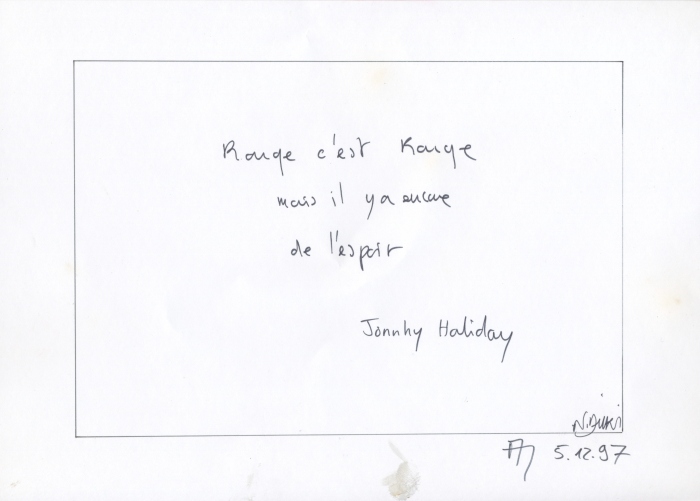 Rouge c'est Rouge
mais il y a encore
de l'espoir
Jonnhy Haliday
5.12.97